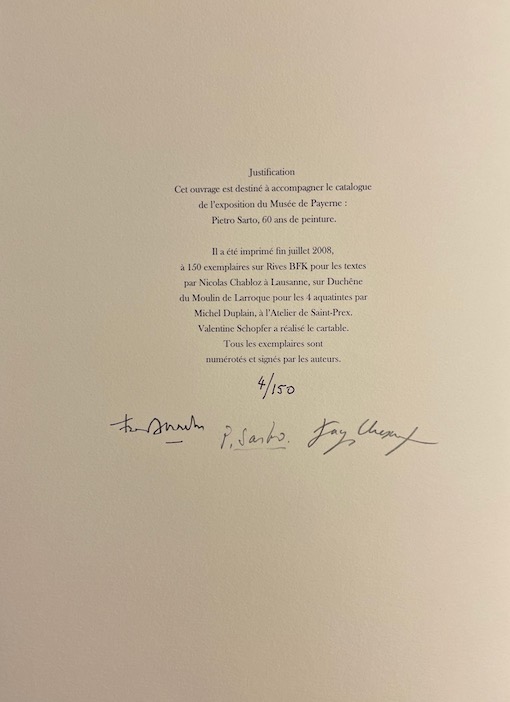 Justification
Cet ouvrage est destiné à accompagner le catalogue
de l'exposition du Musée de Payerne :
Pietro Sarto, 60 ans de peinture.
Il a été imprimé fin juillet 2008,
à 150 exemplaires sur Rives BFK pour les textes
par Nicolas Chabloz à Lausanne, sur Duchêne
du Moulin de Larroque pour les 4 aquatintes par
Michel Duplain, à l'Atelier de Saint-Prex.
Valentine Schopfer a réalisé le cartable.
Tous les exemplaires sont
numérotés et signés par les auteurs.
4/150
P. Sarto.